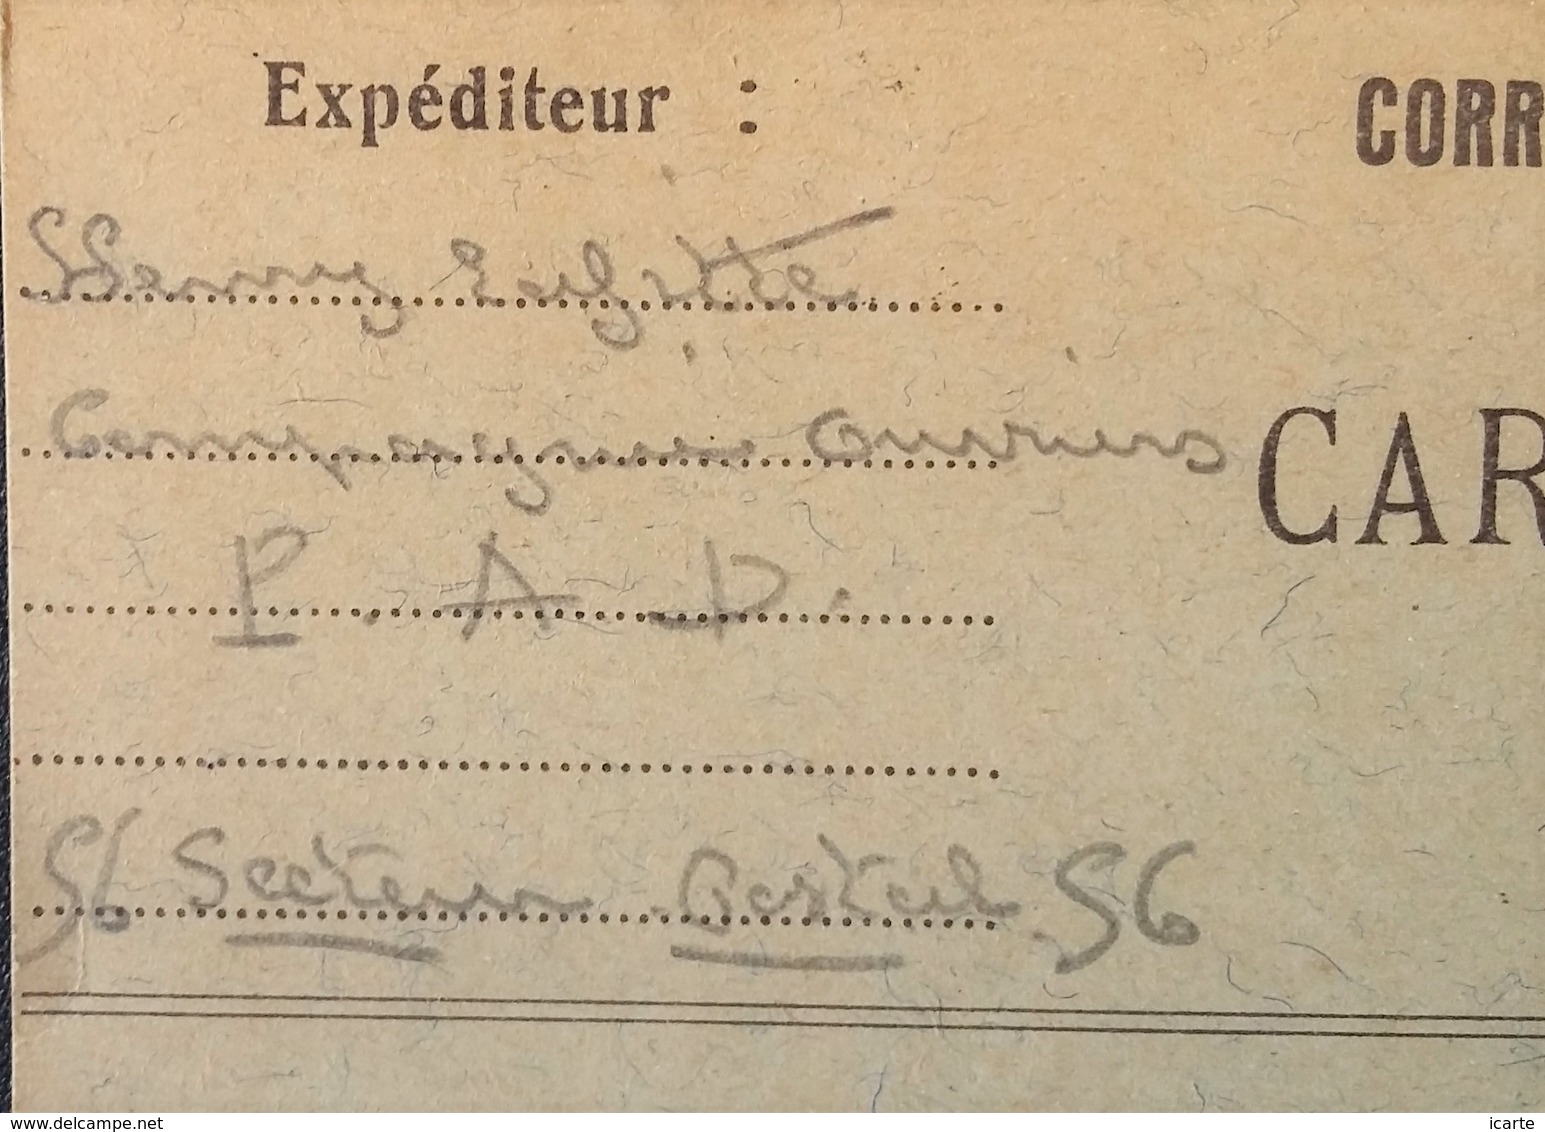 Expéditeur :
CORR
Henry Lafitte
Compagnie Ouvriers
CAR
P. A. D.
56 Secteur Postal 56
www.delcampe.net
icarte